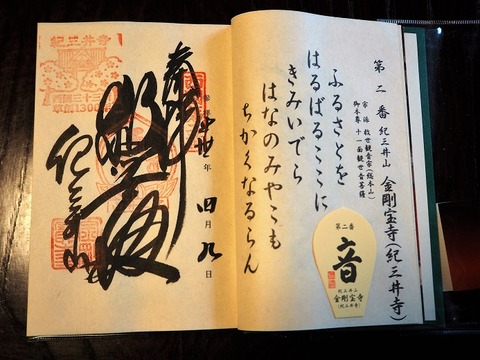 第二番 紀三井山 金剛宝寺(紀三井寺)
宗派 救世観音宗(総本山)
御本尊 十一面観世音菩薩
ふるさとを
はるばるここに
きみいでら
はなのみやこも
ちかくなるらん
第二番
音
紀三井山
金剛宝寺
(紀三井寺)
紀三井寺
西国三十三
草創1300年
奉拝
年 四月九日
紀三井寺